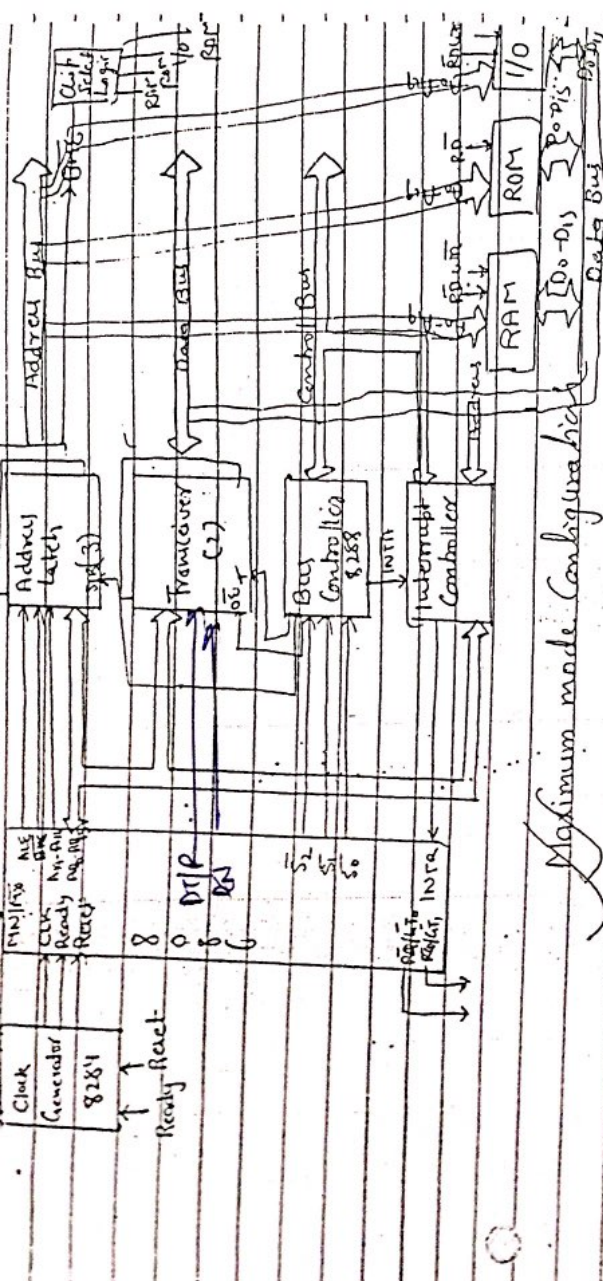 Clock
Generator
8284
Ready Reset
MN/MX
CLK
Ready
Reset
ALE
BHE
8
0
8
6
DT/R
DEN
S̅2
S̅1
S̅0
RQ/GT0
RQ/GT1
INTR
Address
Latch
STB(3)
Tranceiver
(2)
OE T
Bus
Controller
8288
INTA
Interrupt
Controller
Address Bus
Data Bus
Control Bus
BHE
Chip
Select
Logic
RAM
ROM
I/O
RD WR
RAM
RD
ROM
RD WR
I/O
D0-D15
D0-D15
D0-D15
Data Bus
Maximum mode Configuration